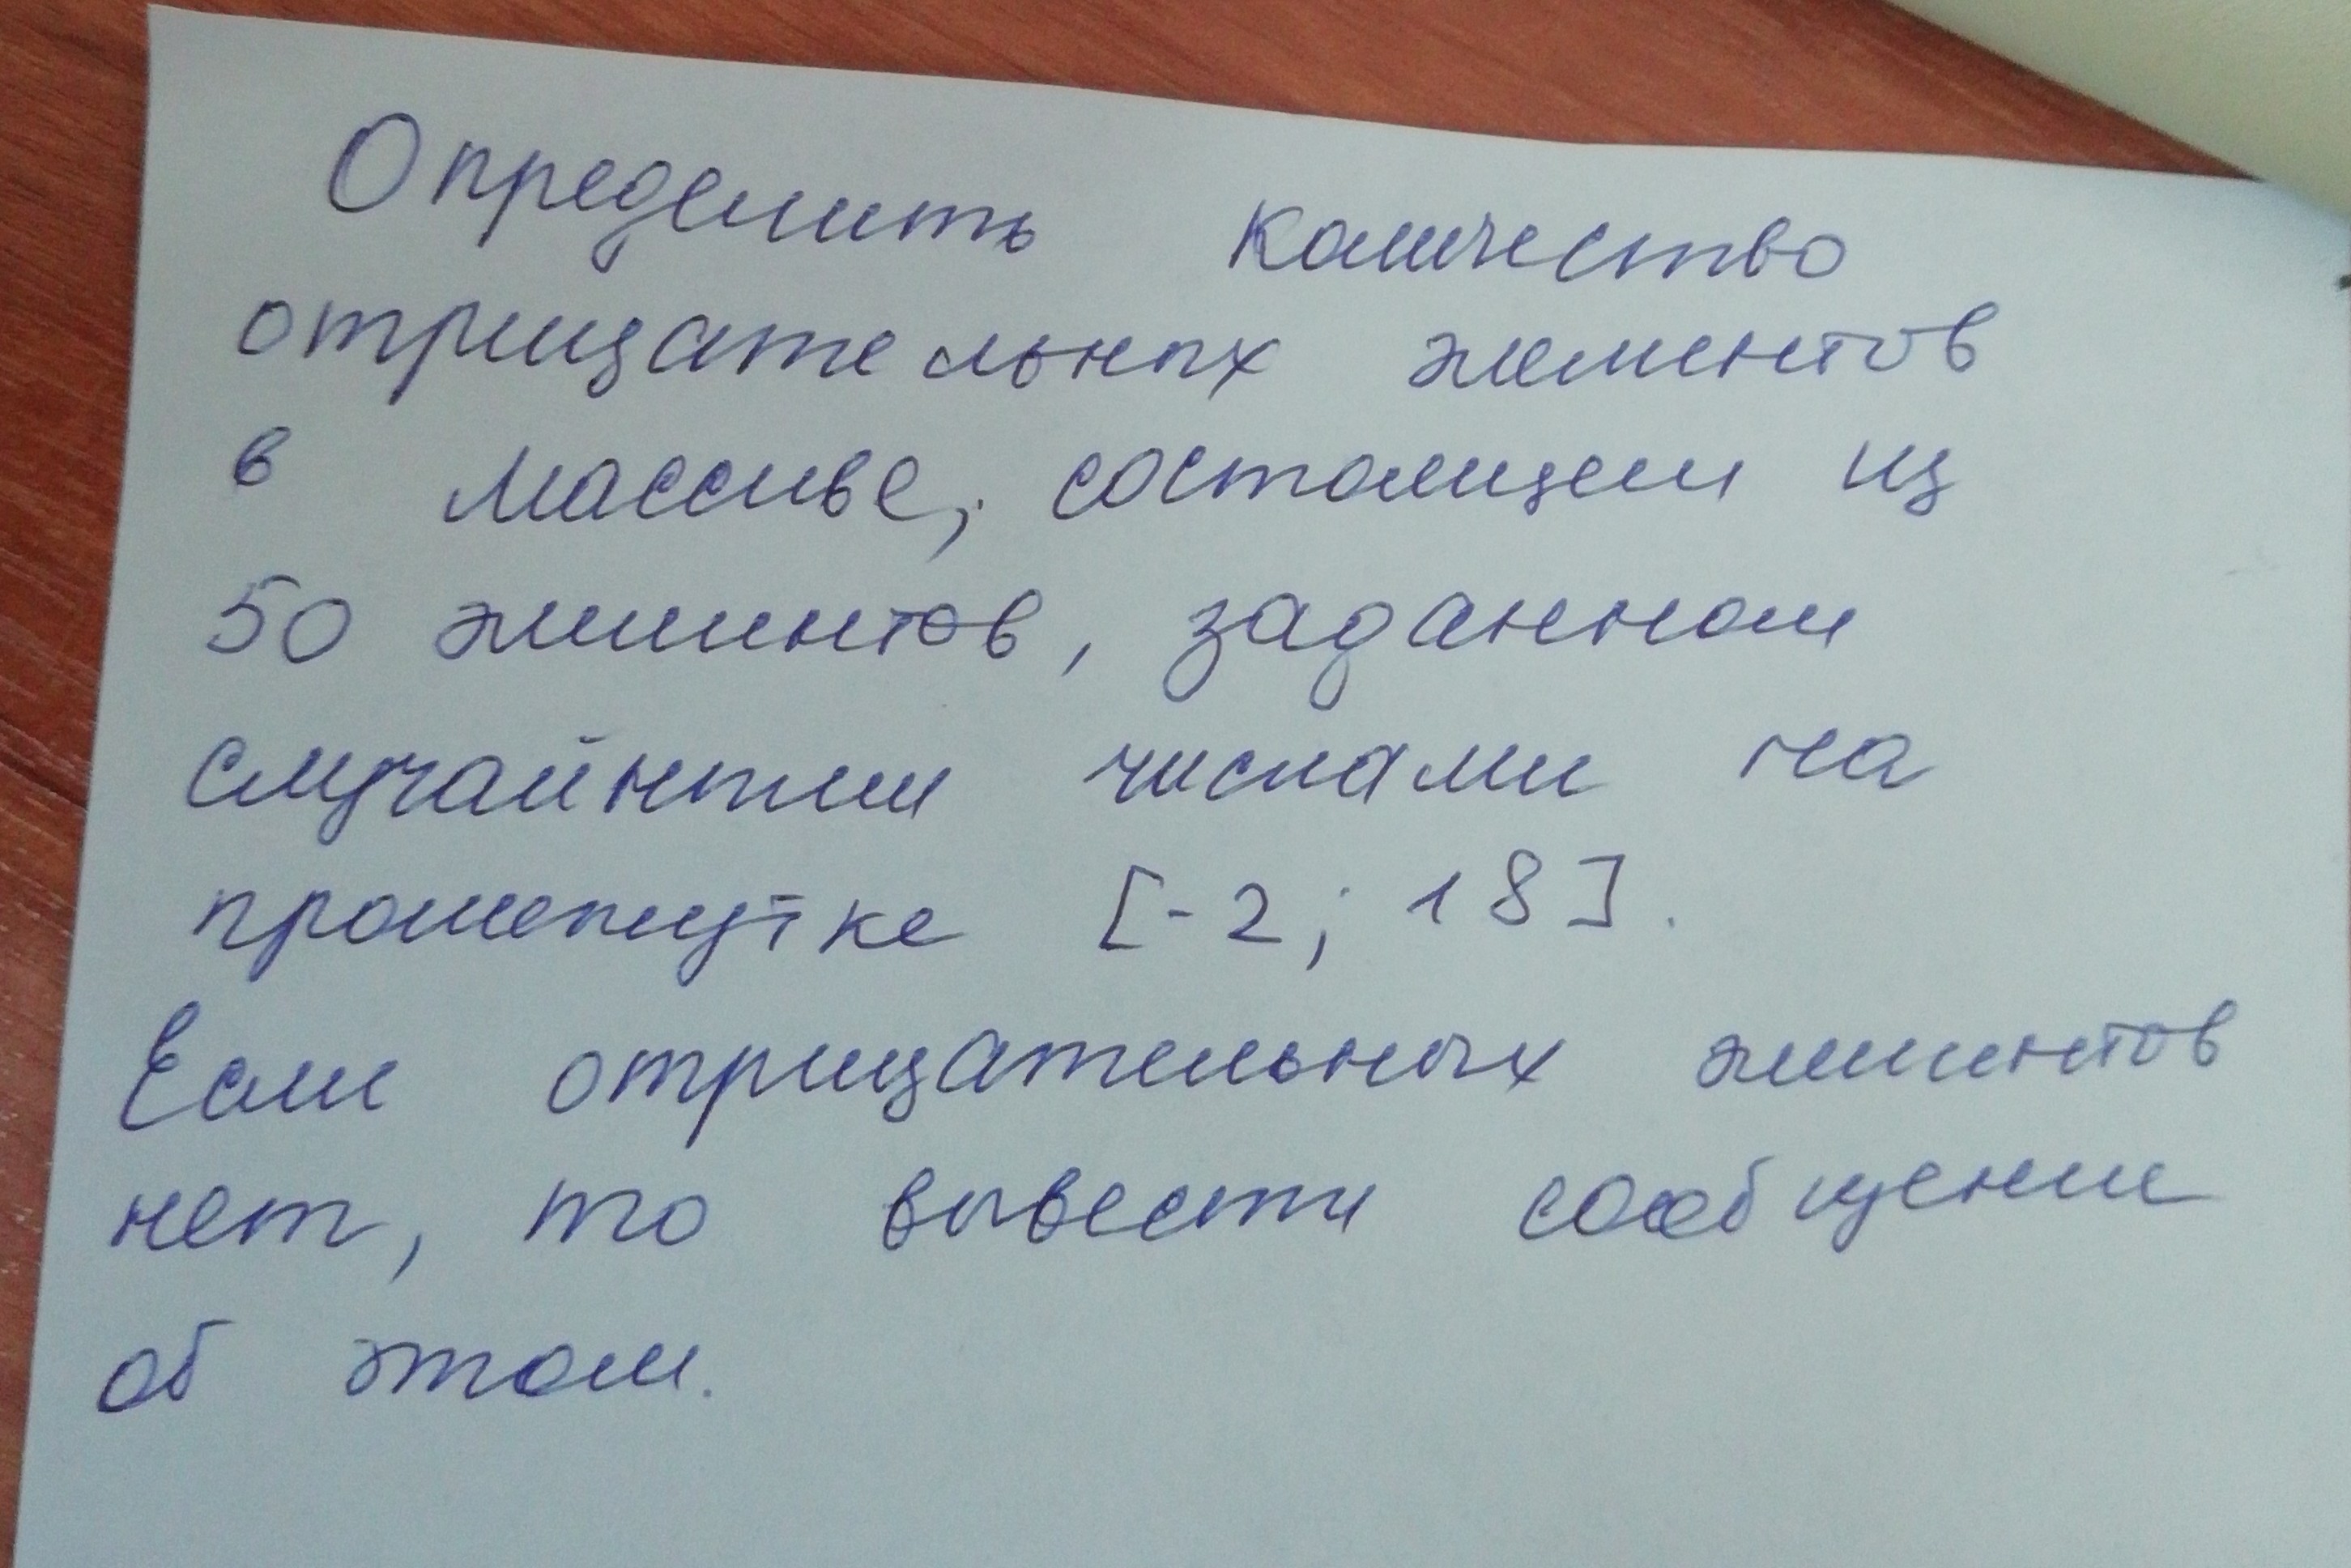 Определить количество
отрицательных элементов
в массиве, состоящем из
50 элементов, заданном
случайными числами на
промежутке [-2; 18].
Если отрицательных элементов
нет, то вывести сообщение
об этом.